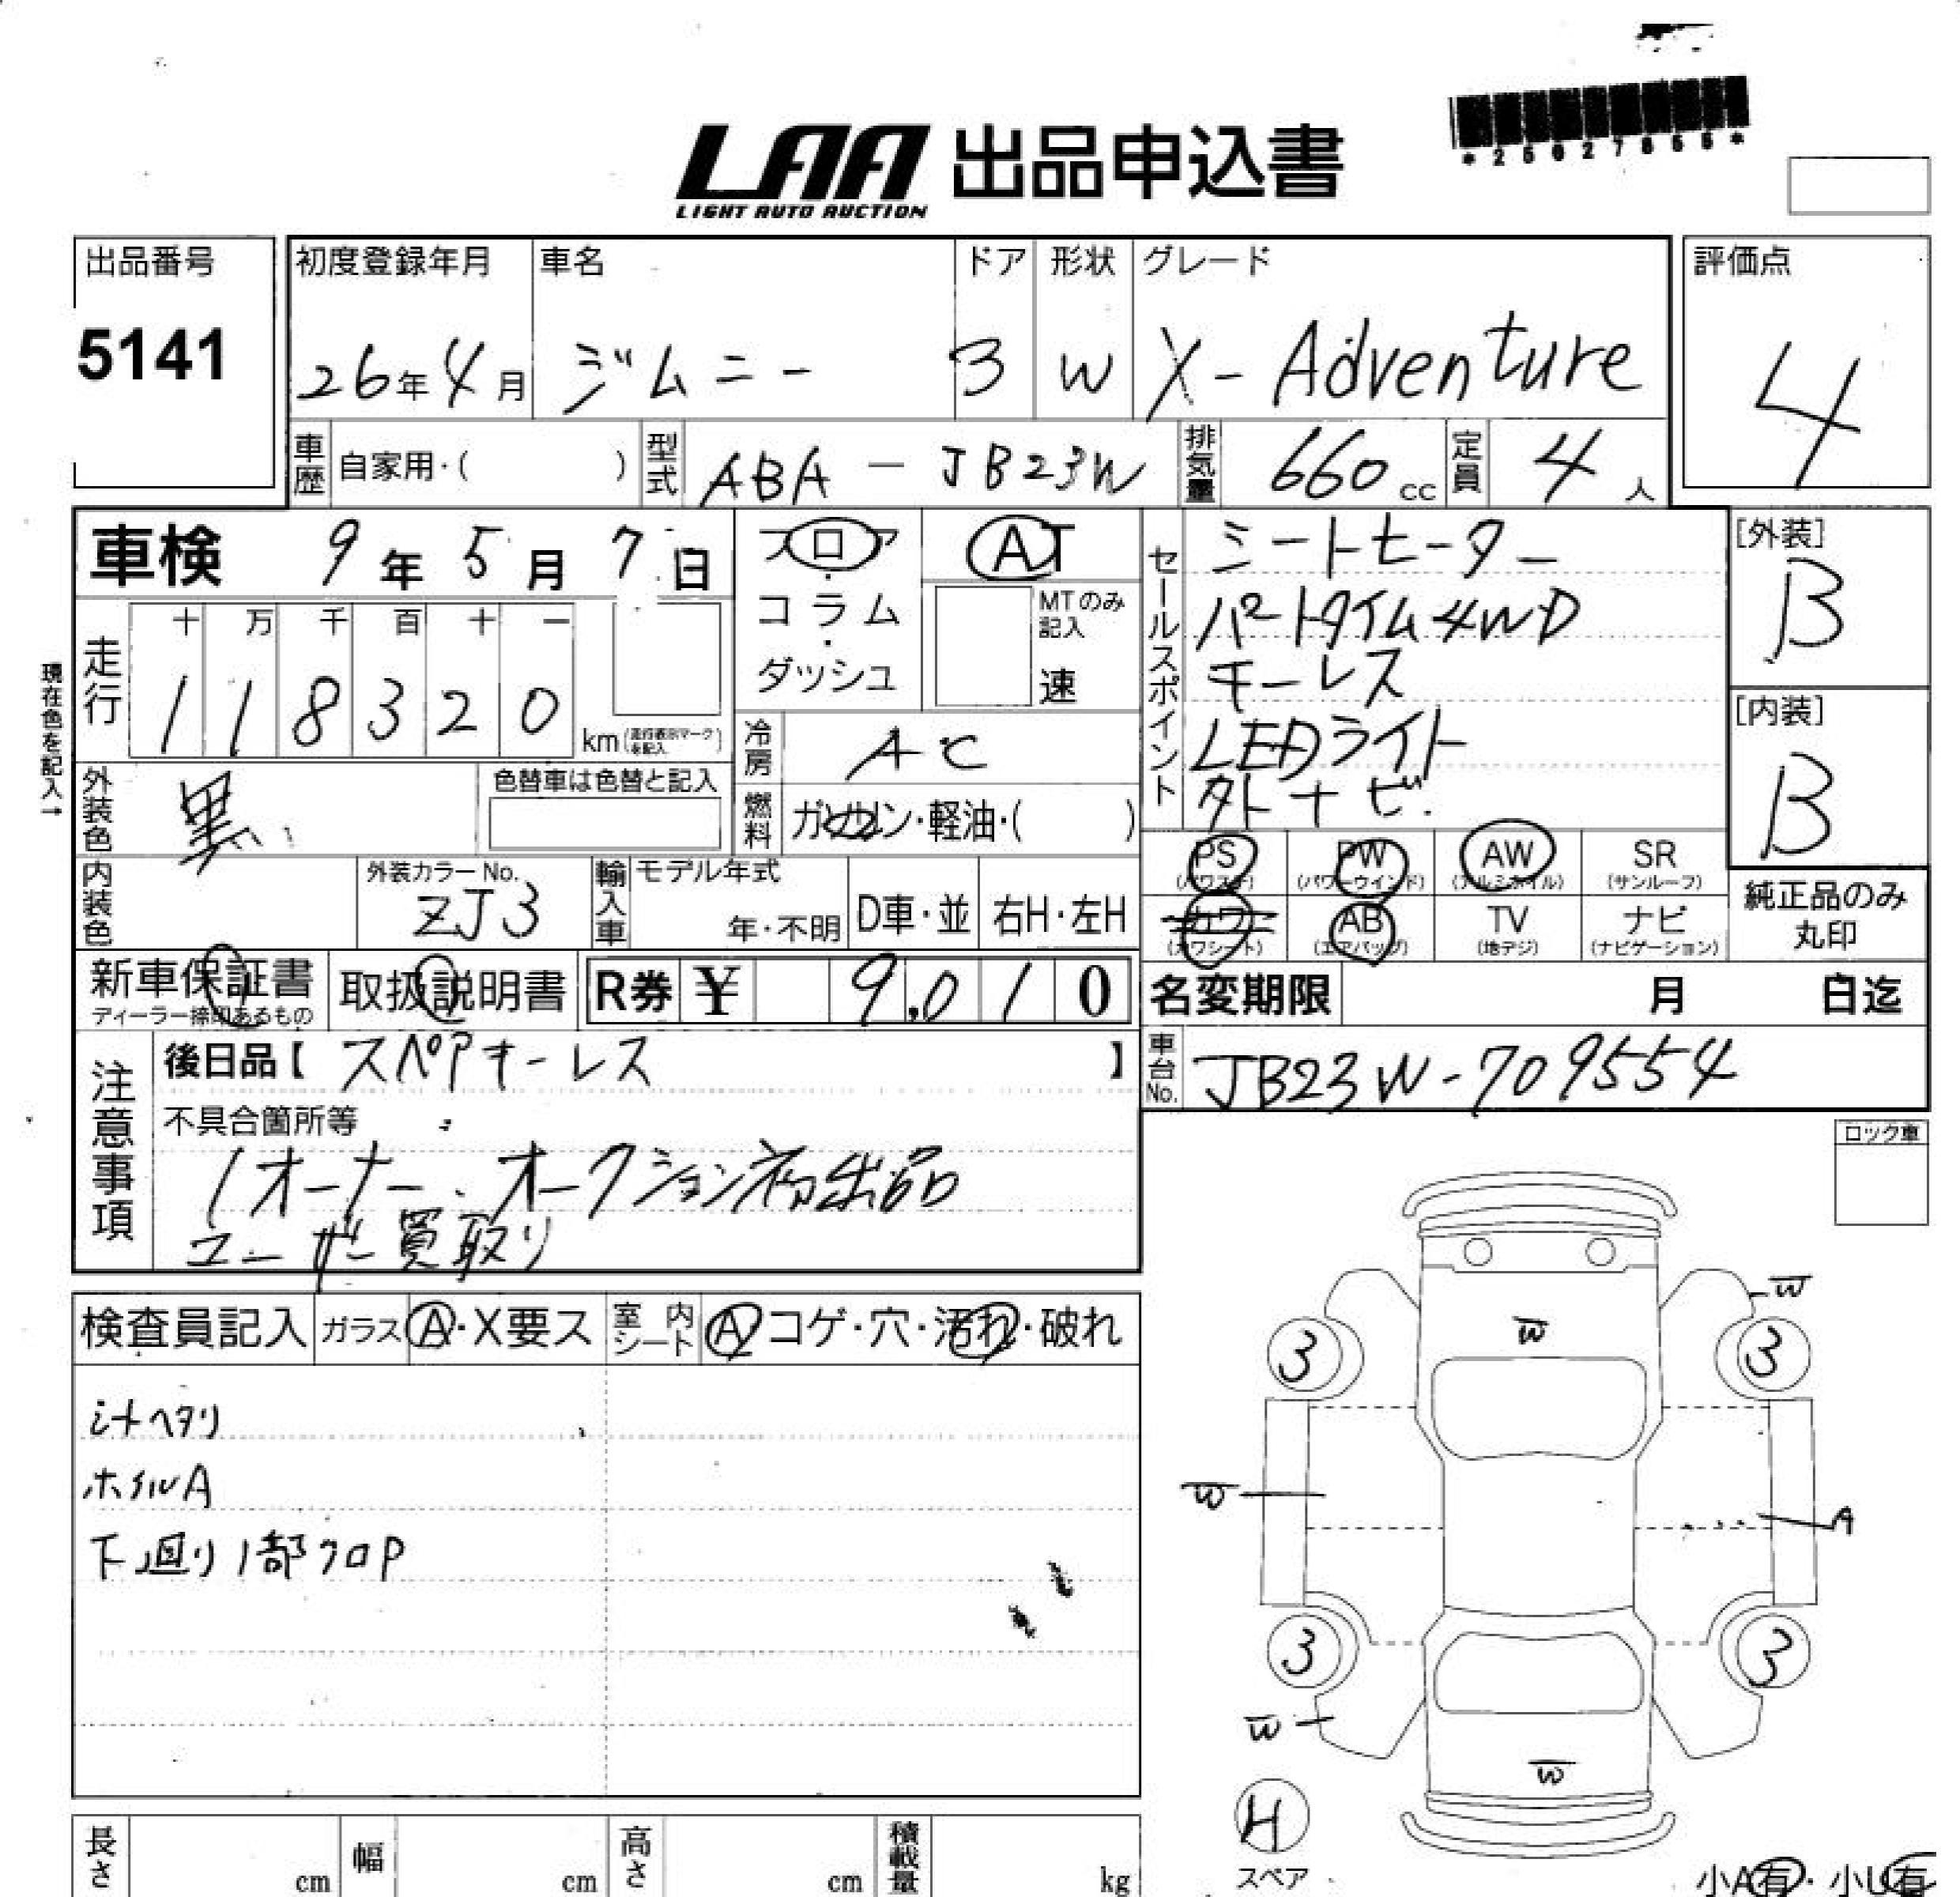 *25027855*
LAA 出品申込書
LIGHT AUTO AUCTION
出品番号
5141
初度登録年月
26年4月
車名
ジムニー
ドア
3
形状
W
グレード
X-Adventure
評価点
4
車歴 自家用・( )
型式 ABA-JB23W
排気量 660cc
定員 4人
車検 9年5月7日
フロア・コラム・ダッシュ
AT
MTのみ記入
速
セールスポイント
シートヒーター
パートタイム4WD
キーレス
LEDライト
外ナビ.
[外装]
B
[内装]
B
現在色を記入→
走行
十 万 千 百 十 一
1 1 8 3 2 0 km(走行表示マークを記入)
冷房 AC
燃料 ガソリン・軽油・( )
外装色 黒
色替車は色替と記入
内装色
外装カラーNo.
ZJ3
輸入車
モデル年式
年・不明
D車・並
右H・左H
PS (パワステ)
PW (パワーウインド)
AW (アルミホイル)
SR (サンルーフ)
カワ (カワシート)
AB (エアバッグ)
TV (地デジ)
ナビ (ナビゲーション)
純正品のみ丸印
新車保証書
ディーラー捺印あるもの
取扱説明書
R券 ¥ 9,010
名変期限 月 日迄
注意事項
後日品【 スペアキーレス 】
不具合箇所等
1オーナー. オークション初出品
ユーザー買取り
車台No. JB23W-709554
ロック車
検査員記入
ガラス A・X要ス
室内シート A コゲ・穴・汚れ・破れ
シートヘタリ
ホイルA
下廻り1部クロP
W
W
3
3
W
A
3
3
W
W
H
スペア
小A有・小U有
長さ cm
幅 cm
高さ cm
積載量 kg